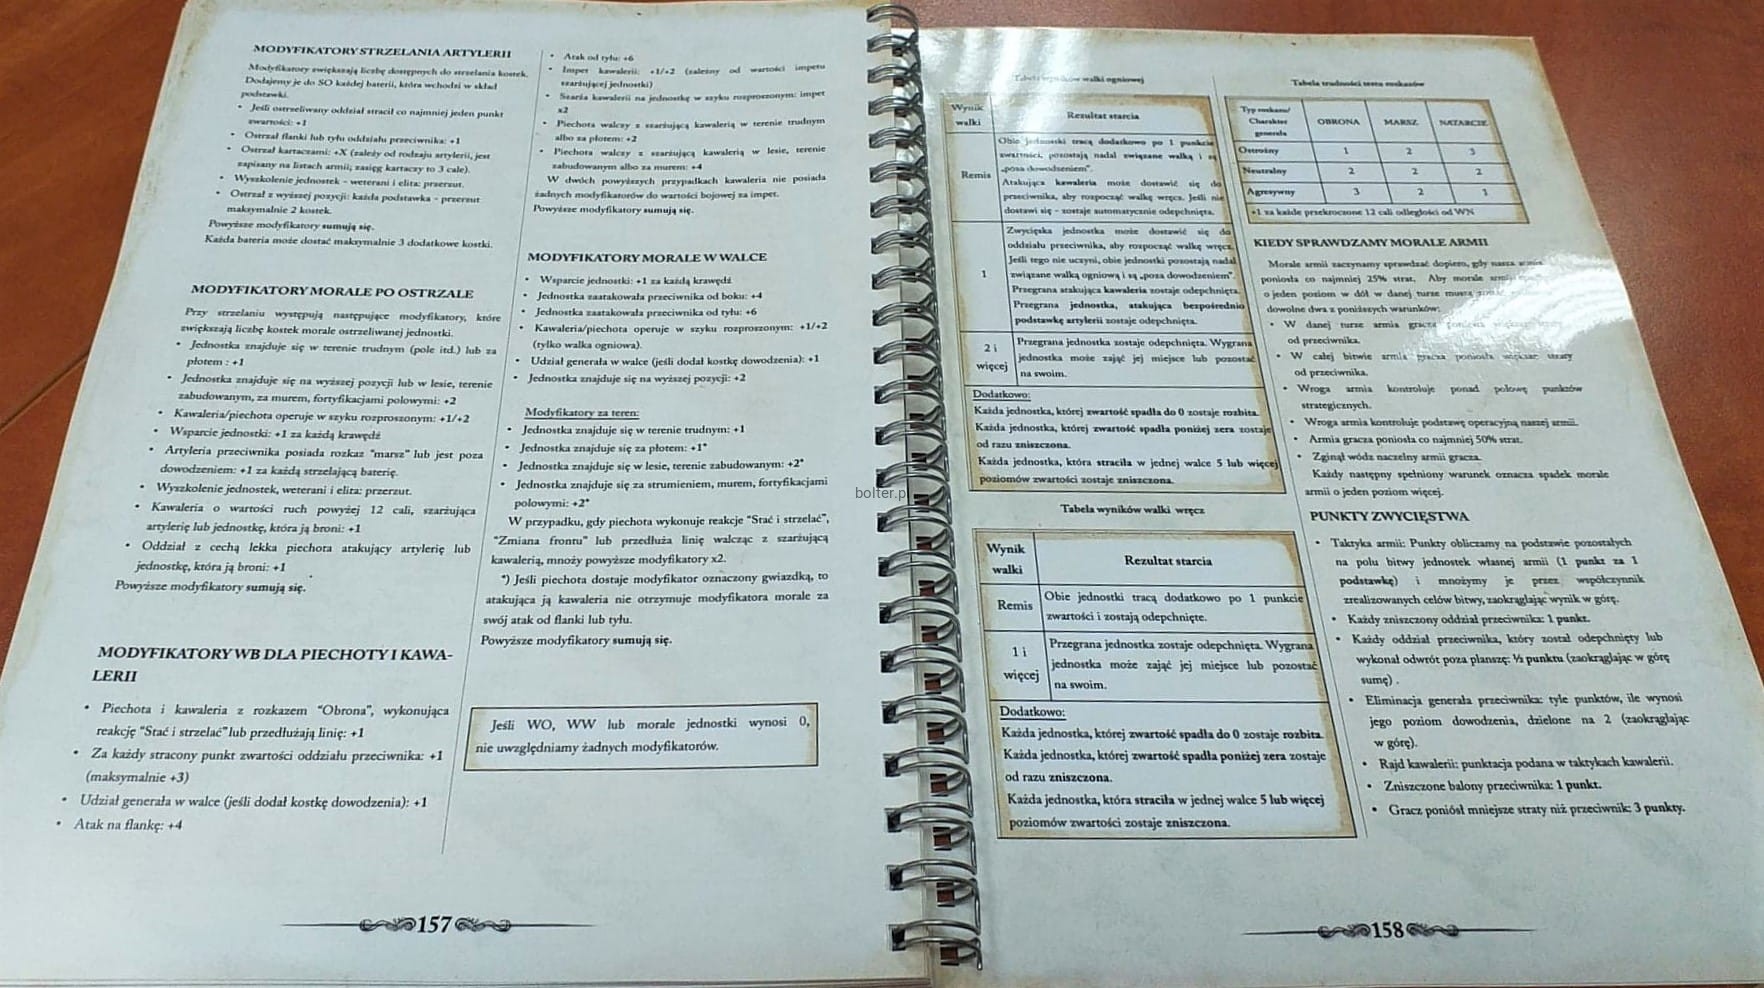 MODYFIKATORY STRZELANIA ARTYLERII
Modyfikatory zwiększają liczbę dostępnych do strzelania kostek.
Dodajemy je do SO każdej baterii, która wchodzi w skład
podstawki.
• Jeśli ostrzeliwany oddział stracił co najmniej jeden punkt
zwartości: +1
• Ostrzał flanki lub tyłu oddziału przeciwnika: +1
• Ostrzał kartaczami: +X (zależy od rodzaju artylerii, jest
zapisany na listach armii; zasięg kartaczy to 3 cale).
• Wyszkolenie jednostek – weterani i elita: przerzut.
• Ostrzał z wyższej pozycji: każda podstawka – przerzut
maksymalnie 2 kostek.
Powyższe modyfikatory sumują się.
Każda bateria może dostać maksymalnie 3 dodatkowe kostki.
MODYFIKATORY MORALE PO OSTRZALE
Przy strzelaniu występują następujące modyfikatory, które
zwiększają liczbę kostek morale ostrzeliwanej jednostki.
• Jednostka znajduje się w terenie trudnym (pole itd.) lub za
płotem : +1
• Jednostka znajduje się na wyższej pozycji lub w lesie, terenie
zabudowanym, za murem, fortyfikacjami polowymi: +2
• Kawaleria/piechota operuje w szyku rozproszonym: +1/+2
• Wsparcie jednostki: +1 za każdą krawędź
• Artyleria przeciwnika posiada rozkaz "marsz" lub jest poza
dowodzeniem: +1 za każdą strzelającą baterię.
• Wyszkolenie jednostek, weterani i elita: przerzut.
• Kawaleria o wartości ruch powyżej 12 cali, szarżująca
artylerię lub jednostkę, która ją broni: +1
• Oddział z cechą lekka piechota atakujący artylerię lub
jednostkę, która ją broni: +1
Powyższe modyfikatory sumują się.
MODYFIKATORY WB DLA PIECHOTY I KAWA-
LERII
• Piechota i kawaleria z rozkazem "Obrona", wykonująca
reakcję "Stać i strzelać" lub przedłużają linię: +1
• Za każdy stracony punkt zwartości oddziału przeciwnika: +1
(maksymalnie +3)
• Udział generała w walce (jeśli dodał kostkę dowodzenia): +1
• Atak na flankę: +4
• Atak od tyłu: +6
• Impet kawalerii: +1/+2 (zależny od wartości impetu
szarżującej jednostki)
• Szarża kawalerii na jednostkę w szyku rozproszonym: impet
x2
• Piechota walczy z szarżującą kawalerią w terenie trudnym
albo za płotem: +2
• Piechota walczy z szarżującą kawalerią w lesie, terenie
zabudowanym albo za murem: +4
W dwóch powyższych przypadkach kawaleria nie posiada
żadnych modyfikatorów do wartości bojowej za impet.
Powyższe modyfikatory sumują się.
MODYFIKATORY MORALE W WALCE
• Wsparcie jednostki: +1 za każdą krawędź
• Jednostka zaatakowała przeciwnika od boku: +4
• Jednostka zaatakowała przeciwnika od tyłu: +6
• Kawaleria/piechota operuje w szyku rozproszonym: +1/+2
(tylko walka ogniowa).
• Udział generała w walce (jeśli dodał kostkę dowodzenia): +1
• Jednostka znajduje się na wyższej pozycji: +2
Modyfikatory za teren:
• Jednostka znajduje się w terenie trudnym: +1
• Jednostka znajduje się za płotem: +1*
• Jednostka znajduje się w lesie, terenie zabudowanym: +2*
• Jednostka znajduje się za strumieniem, murem, fortyfikacjami
polowymi: +2*
W przypadku, gdy piechota wykonuje reakcje "Stać i strzelać",
"Zmiana frontu" lub przedłuża linię walcząc z szarżującą
kawalerią, mnoży powyższe modyfikatory x2.
*) Jeśli piechota dostaje modyfikator oznaczony gwiazdką, to
atakująca ją kawaleria nie otrzymuje modyfikatora morale za
swój atak od flanki lub tyłu.
Powyższe modyfikatory sumują się.
Jeśli WO, WW lub morale jednostki wynosi 0,
nie uwzględniamy żadnych modyfikatorów.
157
bolter.pl
Tabela wyników walki ogniowej
Wynik walki | Rezultat starcia
Remis
Obie jednostki tracą dodatkowo po 1 punkcie
zwartości, pozostają nadal związane walką i są
„poza dowodzeniem".
Atakująca kawaleria może dostawić się do
przeciwnika, aby rozpocząć walkę wręcz. Jeśli nie
dostawi się – zostaje automatycznie odepchnięta.
1
Zwycięska jednostka może dostawić się do
oddziału przeciwnika, aby rozpocząć walkę wręcz.
Jeśli tego nie uczyni, obie jednostki pozostają nadal
związane walką ogniową i są „poza dowodzeniem".
Przegrana atakująca kawaleria zostaje odepchnięta.
Przegrana jednostka, atakująca bezpośrednio
podstawkę artylerii zostaje odepchnięta.
2 i
więcej
Przegrana jednostka zostaje odepchnięta. Wygrana
jednostka może zająć jej miejsce lub pozostać
na swoim.
Dodatkowo:
Każda jednostka, której zwartość spadła do 0 zostaje rozbita.
Każda jednostka, której zwartość spadła poniżej zera zostaje
od razu zniszczona.
Każda jednostka, która straciła w jednej walce 5 lub więcej
poziomów zwartości zostaje zniszczona.
Tabela wyników walki wręcz
Wynik
walki
Rezultat starcia
Remis
Obie jednostki tracą dodatkowo po 1 punkcie
zwartości i zostają odepchnięte.
1 i
więcej
Przegrana jednostka zostaje odepchnięta. Wygrana
jednostka może zająć jej miejsce lub pozostać
na swoim.
Dodatkowo:
Każda jednostka, której zwartość spadła do 0 zostaje rozbita.
Każda jednostka, której zwartość spadła poniżej zera zostaje
od razu zniszczona.
Każda jednostka, która straciła w jednej walce 5 lub więcej
poziomów zwartości zostaje zniszczona.
Tabela trudności testu rozkazów
Typ rozkazu/
Charakter
generała
OBRONA MARSZ NATARCIE
Ostrożny 1 2 3
Neutralny 2 2 2
Agresywny 3 2 1
+1 za każde przekroczone 12 cali odległości od WN
KIEDY SPRAWDZAMY MORALE ARMII
Morale armii zaczynamy sprawdzać dopiero, gdy nasza armia
poniosła co najmniej 25% strat. Aby morale armii
o jeden poziom w dół w danej turze muszą
dowolne dwa z poniższych warunków:
• W danej turze armia gracza poniosła większe straty
od przeciwnika.
• W całej bitwie armia gracza poniosła większe straty
od przeciwnika.
• Wroga armia kontroluje ponad połowę punktów
strategicznych.
• Wroga armia kontroluje podstawę operacyjną naszej armii.
• Armia gracza poniosła co najmniej 50% strat.
• Zginął wódz naczelny armii gracza.
Każdy następny spełniony warunek oznacza spadek morale
armii o jeden poziom więcej.
PUNKTY ZWYCIĘSTWA
• Taktyka armii: Punkty obliczamy na podstawie pozostałych
na polu bitwy jednostek własnej armii (1 punkt za 1
podstawkę) i mnożymy je przez współczynnik
zrealizowanych celów bitwy, zaokrąglając wynik w górę.
• Każdy zniszczony oddział przeciwnika: 1 punkt.
• Każdy oddział przeciwnika, który został odepchnięty lub
wykonał odwrót poza planszę: ½ punktu (zaokrąglając w górę
sumę) .
• Eliminacja generała przeciwnika: tyle punktów, ile wynosi
jego poziom dowodzenia, dzielone na 2 (zaokrąglając
w górę).
• Rajd kawalerii: punktacja podana w taktykach kawalerii.
• Zniszczone balony przeciwnika: 1 punkt.
• Gracz poniósł mniejsze straty niż przeciwnik: 3 punkty.
158